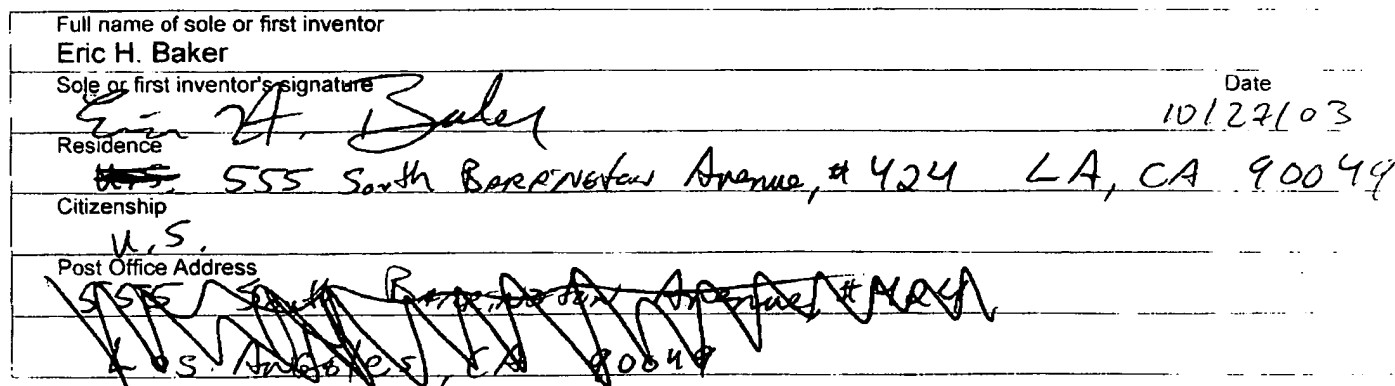 Full name of sole or first inventor
Eric H. Baker
Sole or first inventor's signature Date
Eric H. Baker 10/27/03
Residence
U.S. 555 South Barrington Avenue, #424 LA, CA 90049
Citizenship
U.S.
Post Office Address
555 South Barrington Avenue, #424
Los Angeles, CA 90049